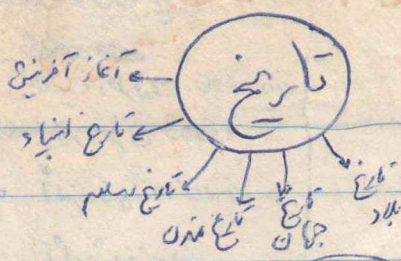 تاریخ
آغاز آفرینش
تاریخ انبیاء
تاریخ اسلام
تاریخ تمدن
تاریخ جهان
تاریخ بلاد